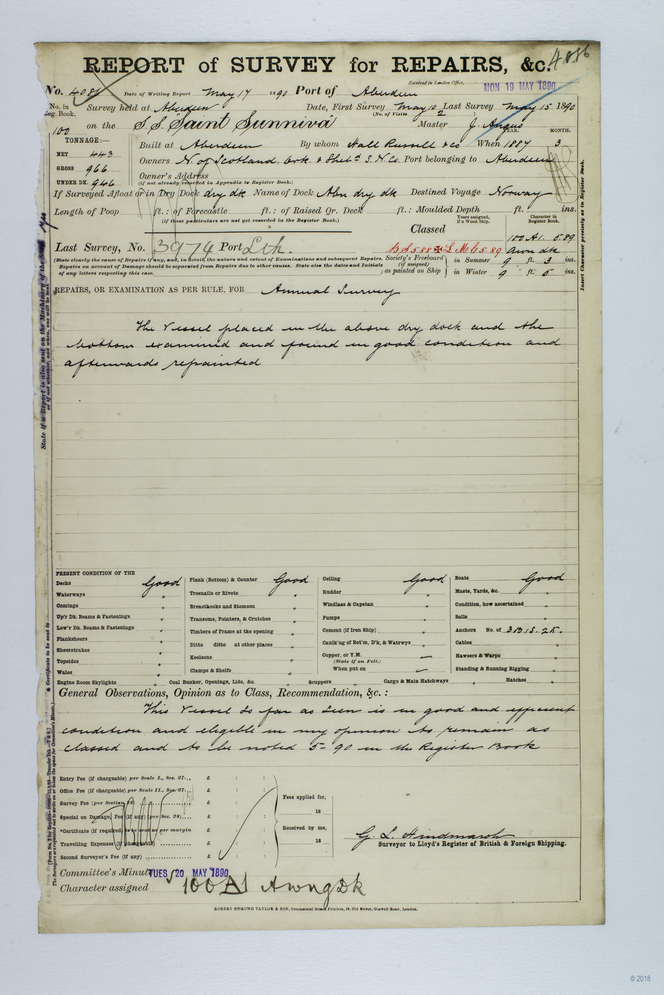 REPORT of SURVEY for REPAIRS, &c. 4086
Received at London Office,
No. 4086 Date of Writing Report May 17 1890 Port of Aberdeen MON 19 MAY 1890
No. in Reg. Book. Survey held at Aberdeen Date, First Survey May 10 Last Survey May 15 1890
(No. of Visits 2
100 on the S.S. "Saint Sunniva" Master J. Angus
TONNAGE:— YEAR. MONTH.
NETT 443 Built at Aberdeen By whom Hall Russell & Co When 1887 3
GROSS 966 Owners N. of Scotland, Ork. & Shetd S. N. Co. Port belonging to Aberdeen
UNDER DK. 946 Owner's Address
(if not already recorded in Appendix to Register Book.)
If Surveyed Afloat or in Dry Dock dry dk Name of Dock Abn dry dk Destined Voyage Norway
Length of Poop ft.: of Forecastle ft.: of Raised Qr. Deck ft.: Moulded Depth ft. ins.
(if these particulars are not yet recorded in the Register Book.)
Years assigned, if a Wood Ship. Character in Register Book.
Classed 100 A1. 5.89
Last Survey, No. 3974 Port Lth. Awn dk
(State clearly the cause of Repairs if any, and, in detail, the nature and extent of Examinations and subsequent Repairs.
Repairs on account of Damage should be separated from Repairs due to other causes. State also the dates and Initials
of any letters respecting this case.)
Society's Freeboard (if assigned) as painted on Ship in Summer 9 ft. 3 ins.
in Winter 9 ft. 5 ins.
Insert Character precisely as in Register Book.
REPAIRS, OR EXAMINATION AS PER RULE, FOR Annual Survey
The Vessel placed in the above dry dock and the
bottom examined and found in good condition and
afterwards repainted
PRESENT CONDITION OF THE
Decks Good Plank (Bottom) & Counter Good Ceiling Good Boats Good
Waterways " Treenails or Rivets " Rudder " Masts, Yards, &c. "
Comings " Breasthooks and Stemson " Windlass & Capstan " Condition, how ascertained "
Up'r Dk. Beams & Fastenings " Transoms, Pointers, & Crutches " Pumps " Sails "
Low'r Dk. Beams & Fastenings " Timbers of Frame at the opening " Cement (if Iron Ship) " Anchors No. of 3B 1S. 2K.
Planksheers " Ditto ditto at other places " Caulk'ng of Bot'm, D'k, & Watrwys " Cables "
Sheerstrakes " Keelsons " Copper, or Y.M. — Hawsers & Warps "
Topsides " (State if on Felt.)
Wales " Clamps & Shelfs " When put on — Standing & Running Rigging "
Engine Room Skylights " Coal Bunker, Openings, Lids, &c. " Scuppers " Cargo & Main Hatchways " Hatches "
General Observations, Opinion as to Class, Recommendation, &c.:
This Vessel so far as seen is in good and efficient
condition and eligible in my opinion to remain as
classed and to be noted 5-90 in the Register Book
Entry Fee (if chargeable) per Scale I., Sec. 27... £ : :
Office Fee (if chargeable) per Scale II., Sec. 27... £ : :
Survey Fee (per Section 28) £ : : Fees applied for,
Special on Damage Fee (if any) (per Sec. 28) £ : : 18
*Certificate (if required) to be sent as per margin £ : : Received by me,
Travelling Expenses (if chargeable) £ : : 18
Second Surveyor's Fee (if any) £ : :
G. L. Hindmarsh
Surveyor to Lloyd's Register of British & Foreign Shipping.
Committee's Minute TUES 20 MAY 1890
Character assigned 100 A1 Awng Dk
© 2018